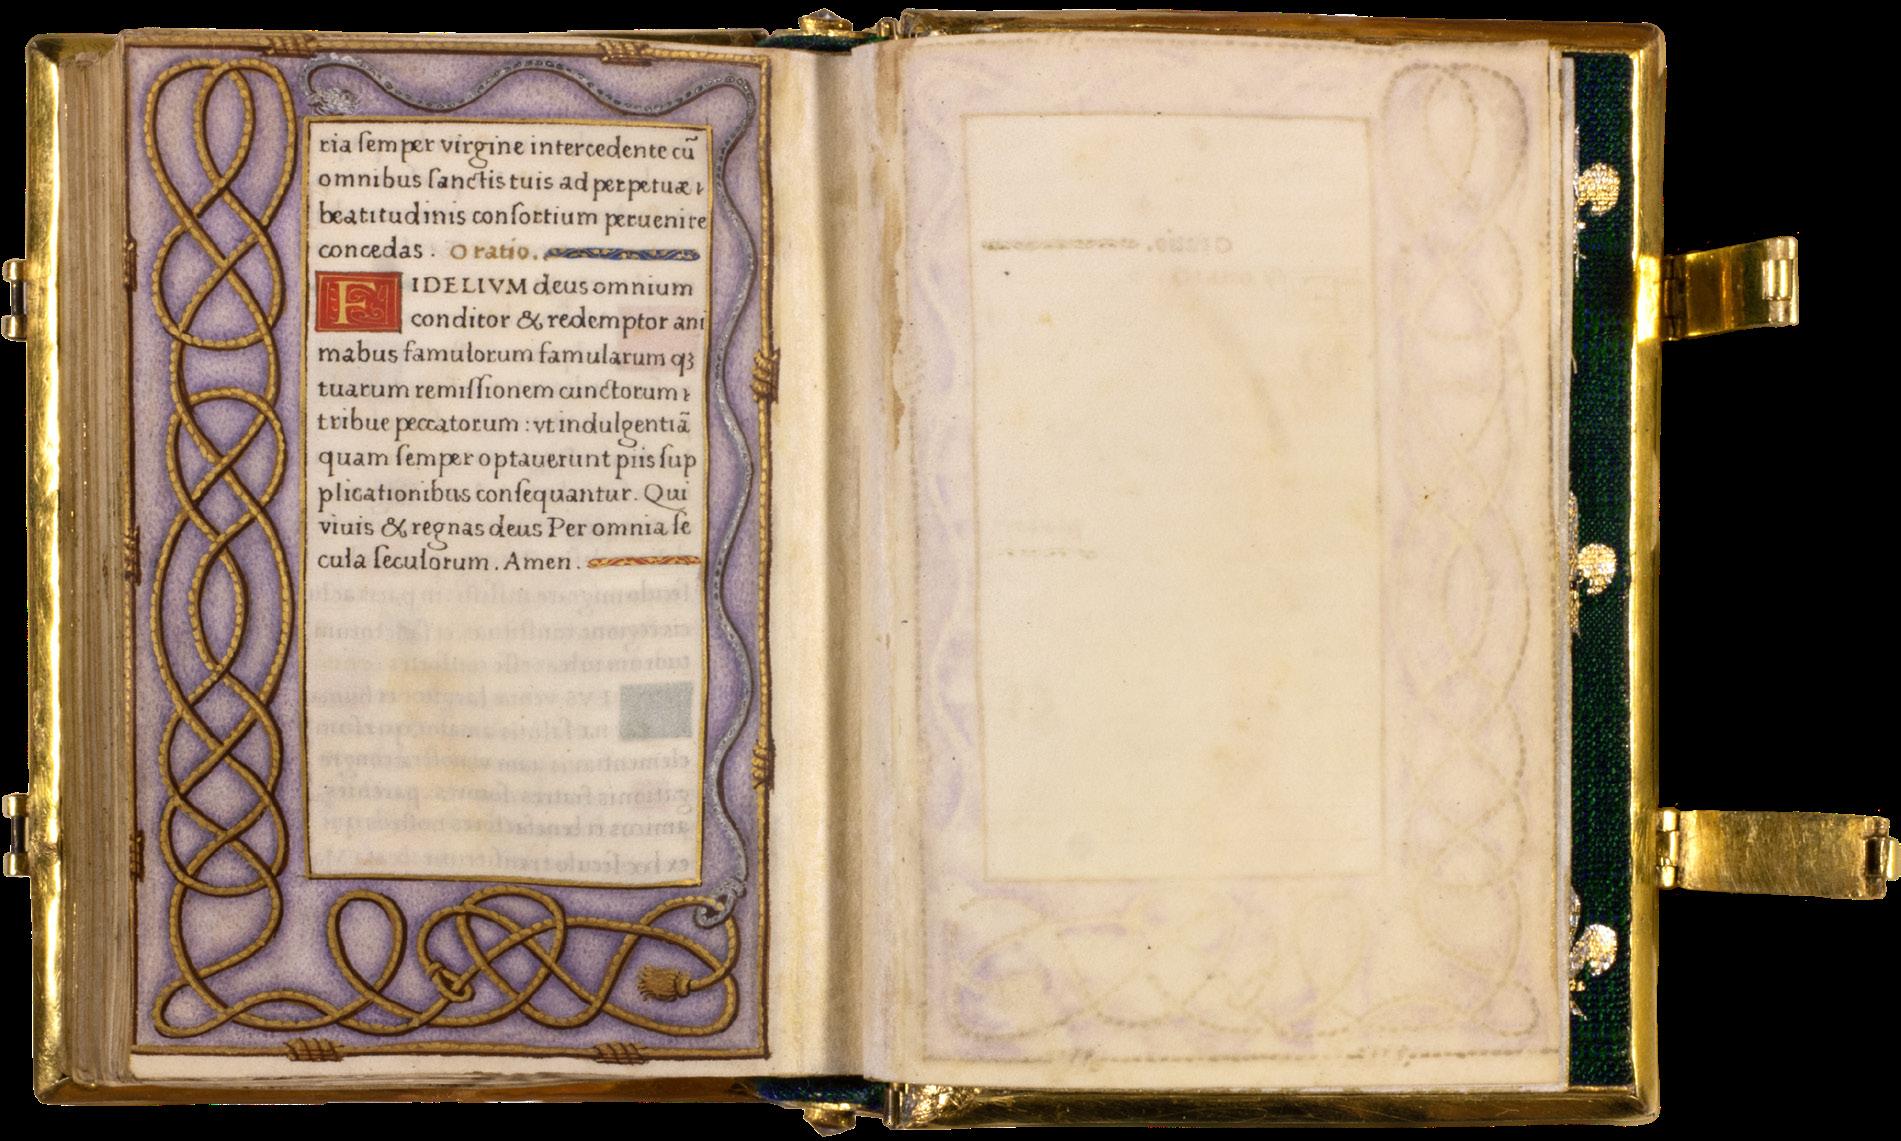 ria ſemper virgine intercedente cū
omnibus ſanctis tuis ad perpetuæ
beatitudinis conſortium peruenire
concedas. Oratio.
FIDELIVM deus omnium
conditor & redemptor ani
mabus famulorum famularum qꝫ
tuarum remiſſionem cunctorum
tribue peccatorum: vt indulgentiā
quam ſemper optauerunt piis ſup
plicationibus conſequantur. Qui
viuis & regnas deus Per omnia ſe
cula ſeculorum. Amen.